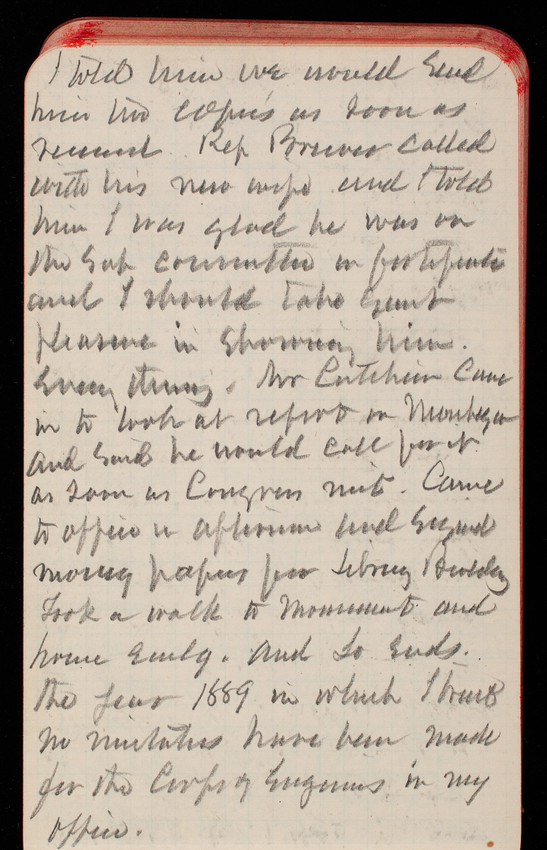 I told him we would send
him two copies as soon as
received. Rep Brewer called
with his new wife and I told
him I was glad he was on
the Sub committee on fortificati
and I should take great
pleasure in showing him.
Every thing. Mr Cutcheon Came
in to look at report on Muskegon
and said he would call for it
as soon as Congress met. Came
to office in afternoon and Signed
money papers for Library Building
Took a walk to Monument and
home Early. And So Ends.
the year 1889 in which I trust
no mistakes have been made
for the Corps of Engineers in my
office.